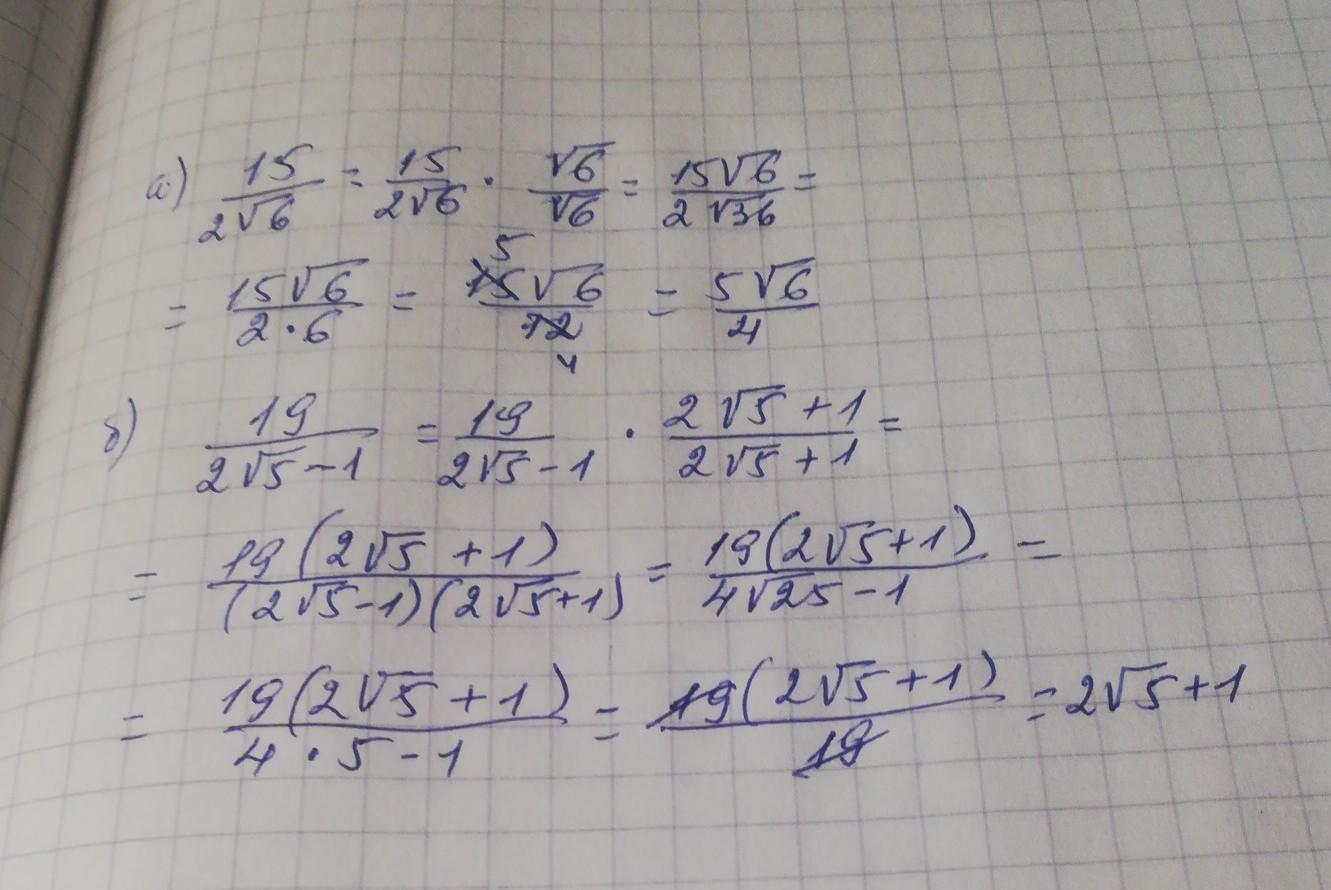 а) 15/(2√6) = 15/(2√6) · √6/√6 = 15√6/(2√36) =
= 15√6/(2·6) = 15√6/12 (5, 4) = 5√6/4
б) 19/(2√5-1) = 19/(2√5-1) · (2√5+1)/(2√5+1) =
= 19(2√5+1)/((2√5-1)(2√5+1)) = 19(2√5+1)/(4√25-1) =
= 19(2√5+1)/(4·5-1) = 19(2√5+1)/19 = 2√5+1